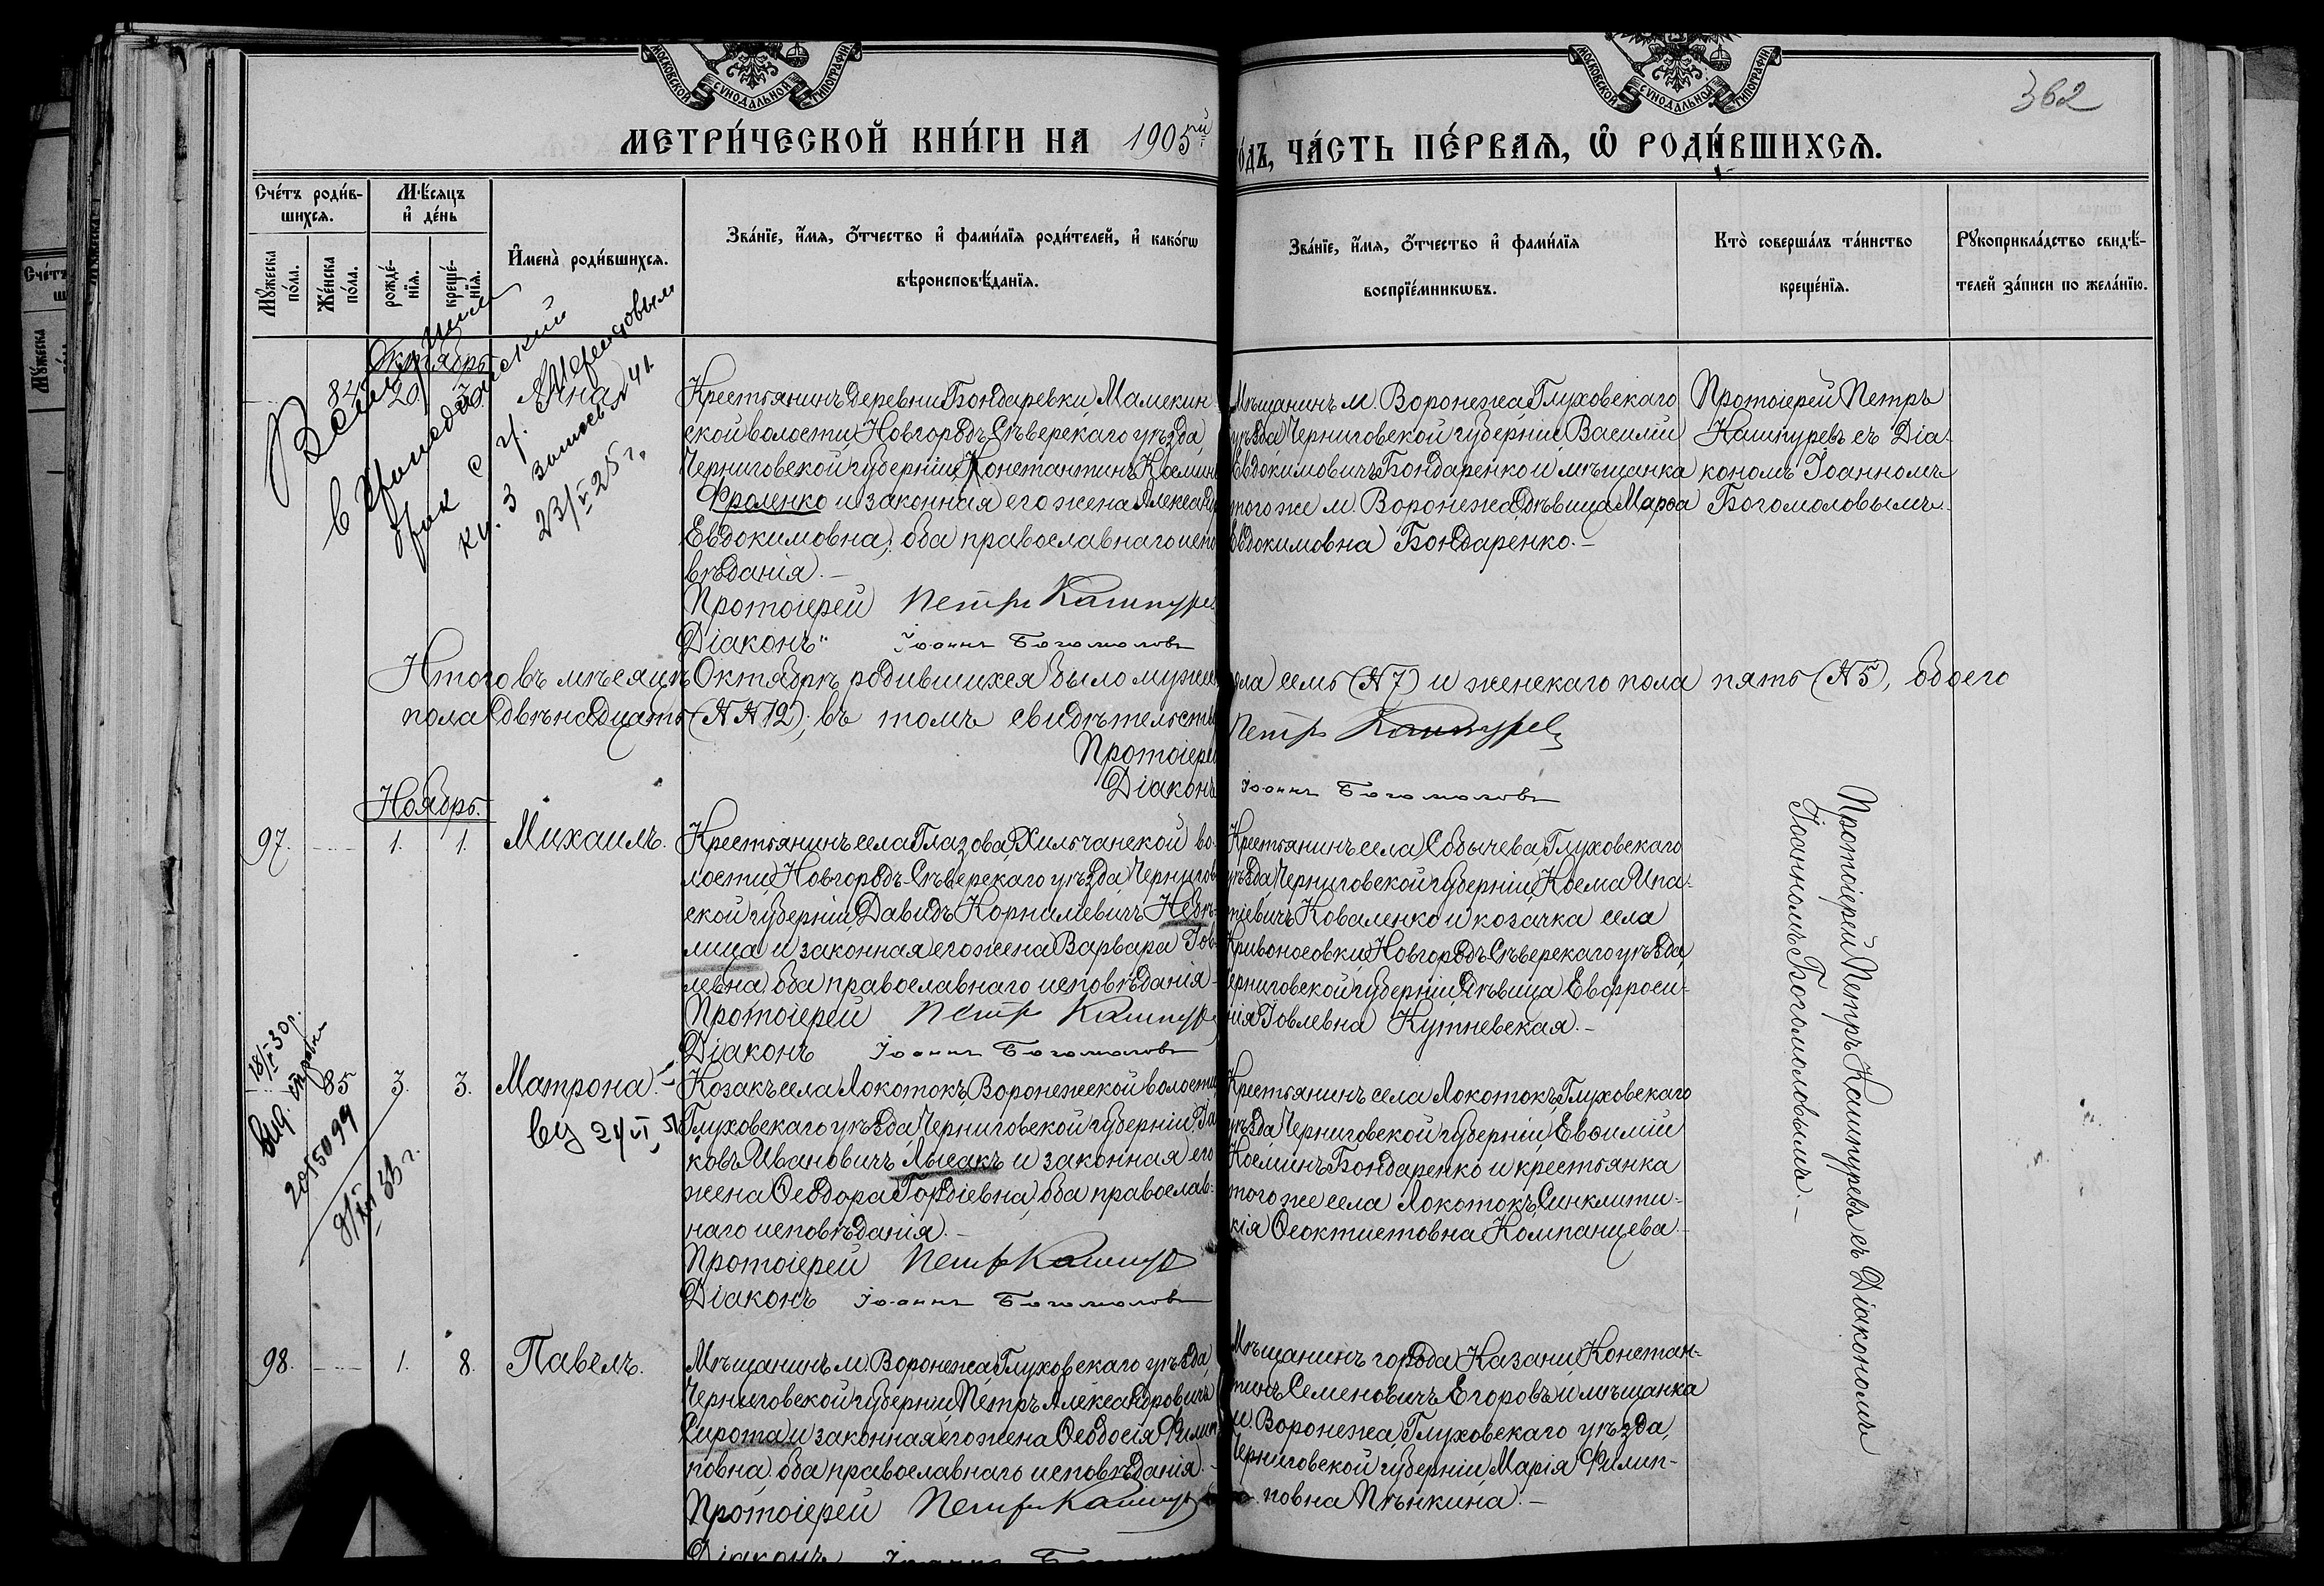 МОСКОВСКОЙ СѴНОДАЛЬНОЙ ТИПОГРАФІИ
МОСКОВСКОЙ СѴНОДАЛЬНОЙ ТИПОГРАФІИ
362
МЕТРИ́ЧЕСКОЙ КНИ́ГИ НА 1905й
го́дъ, ЧА́СТЬ ПЕ́РВАѦ, Ѽ РОДИ́ВШИХСѦ.
Сче́тъ роди́в-
шихсѧ.
Мꙋ́жеска по́ла.
Же́нска по́ла.
Мѣ́сяцъ
и҆ де́нь
рожде́-
нїѧ.
креще́-
нїѧ.
И҆мена̀ роди́вшихсѧ.
Зва́нїе, и҆́мѧ, ѻ҆́тчество и҆ фами́лїѧ роди́телей, и҆ како́гѡ
вѣроисповѣ́данїѧ.
Зва́нїе, и҆́мѧ, ѻ҆́тчество и҆ фами́лїѧ
воспрїе́мникѡвъ.
Кто̀ соверша́лъ та́инство
креще́нїѧ.
Рꙋкоприкла́дство свидѣ́-
телей за́писи по жела́нїю.
Октябрь
84. 29. 30. Анна
брак с г.
кн. 3 записью 41.
23/V 25 г.
Крестьянинъ деревни Бондаревки, Мамекин-
ской волости, Новгородъ-Сѣверскаго уѣзда,
Черниговской губерніи, Константинъ Косминъ
Фроленко и законная его жена Александра
Евдокимовна, оба православнаго испо-
вѣданія.–
Протоіерей Петръ Кашпуревъ
Діаконъ Іоаннъ Богомоловъ
Мѣщанинъ м. Воронежа, Глуховскаго
уѣзда Черниговской губерніи Василій
Евдокимовичъ Бондаренко и мѣщанка
того же м. Воронежа, дѣвица Марѳа
Евдокимовна Бондаренко.–
Протоіерей Петръ
Кашпуревъ съ Діа-
кономъ Іоанномъ
Богомоловымъ.
Итого въ мѣсяцѣ Октябрѣ родившихся было мужск. пола семь (№ 7) и женскаго пола пять (№ 5), обоего
пола двѣнадцать (№№ 12); въ томъ свидѣтельств.
Протоіерей Петръ Кашпуревъ
Діаконъ Іоаннъ Богомоловъ
Ноябрь.
97. 1. 1. Михаилъ.
Крестьянинъ села Глазова, Хильчанской во-
лости, Новгородъ-Сѣверскаго уѣзда, Чернигов-
ской губерніи, Давидъ Корниліевичъ Небѣ-
лица и законная его жена Варвара Іов-
левна, оба православнаго исповѣданія.–
Протоіерей Петръ Кашпуревъ
Діаконъ Іоаннъ Богомоловъ
Крестьянинъ села Собычева, Глуховскаго
уѣзда Черниговской губерніи, Косма Ипа-
тіевичъ Коваленко и козачка села
Кривоносовки, Новгородъ-Сѣверскаго уѣзда,
Черниговской губерніи, дѣвица Евфроси-
нія Іовлевна Кутневская.–
Протоіерей Петръ Кашпуревъ съ Діакономъ
Іоанномъ Богомоловымъ.–
18/I 30 г.
Выд.
2055099
9/VII 33 г.
85. 3. 3. Матрона.
Козакъ села Локотокъ, Воронежской волости,
Глуховскаго уѣзда Черниговской губерніи, Іа-
ковъ Ивановичъ Лысакъ и законная его
жена Ѳеодора Гордіевна, оба православ-
наго исповѣданія.–
Протоіерей Петръ Кашпуревъ
Діаконъ Іоаннъ Богомоловъ
Крестьянинъ села Локотокъ, Глуховскаго
уѣзда Черниговской губерніи, Евѳимій
Косминъ Бондаренко и крестьянка
того же села Локотокъ, Синклити-
кія Ѳеоктистовна Компанцева.–
98. 1. 8. Павелъ.
Мѣщанинъ м. Воронежа, Глуховскаго уѣзда,
Черниговской губерніи, Петръ Александровичъ
Сирота и законная его жена Ѳеодосія Филип-
повна, оба православнаго исповѣданія.–
Протоіерей Петръ Кашпуревъ
Діаконъ Іоаннъ Богомоловъ
Мѣщанинъ города Казани Констан-
тинъ Семеновичъ Егоровъ и мѣщанка
м. Воронежа, Глуховскаго уѣзда,
Черниговской губерніи, Марія Филип-
повна Пѣнкина.–